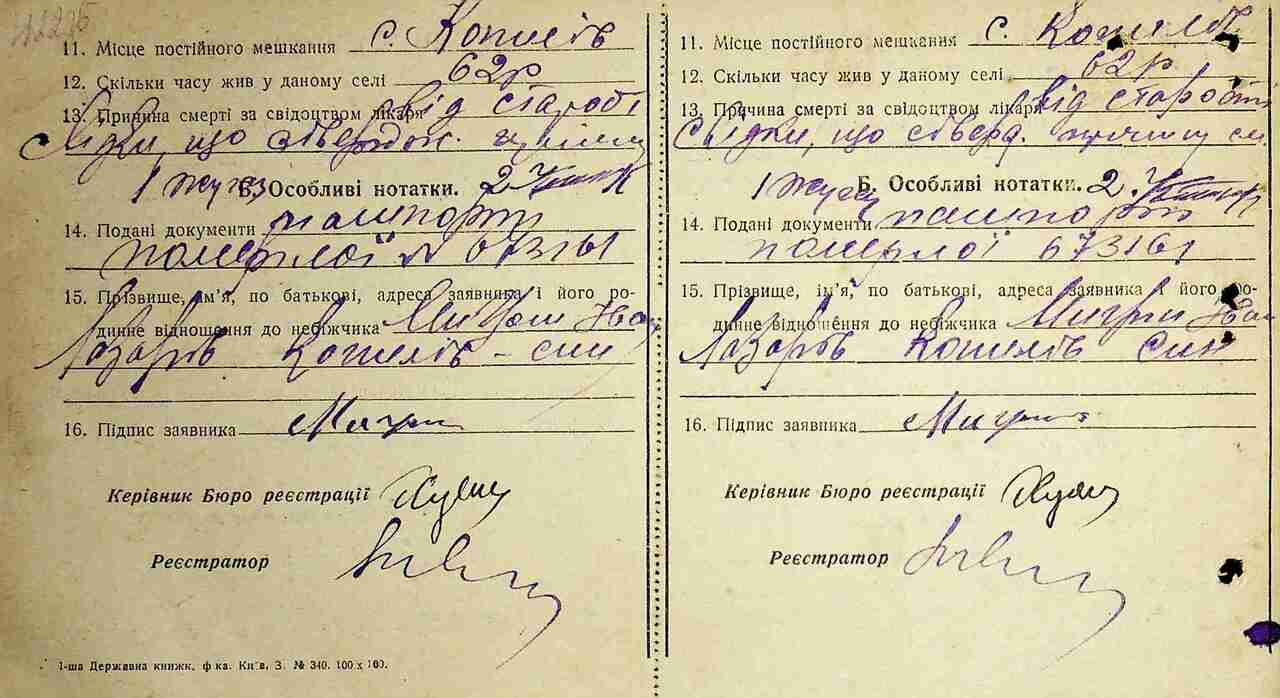 11. Місце постійного мешкання с. Копилів
12. Скільки часу жив у даному селі 62р
13. Причина смерті за свідоцтвом лікаря від старості
Свідки, що ствердж.
1 2
Б. Особливі нотатки.
14. Подані документи пашпорт
померлої № 673161
15. Прізвище, ім'я, по батькові, адреса заявника і його ро-
динне відношення до небіжчика Іван
Лазарів Копилів - син
16. Підпис заявника
Керівник Бюро реєстрації
Реєстратор
1-ша Державна книжк. ф-ка. Київ, З. № 340. 100 х 100.
11. Місце постійного мешкання с. Копилів
12. Скільки часу жив у даному селі 62р
13. Причина смерті за свідоцтвом лікаря від старости
Свідки, що ствердж. причину см.
1 2
Б. Особливі нотатки.
14. Подані документи пашпорт
померлої 673161
15. Прізвище, ім'я, по батькові, адреса заявника і його ро-
динне відношення до небіжчика Іван
Лазарів Копилів син
16. Підпис заявника
Керівник Бюро реєстрації
Реєстратор